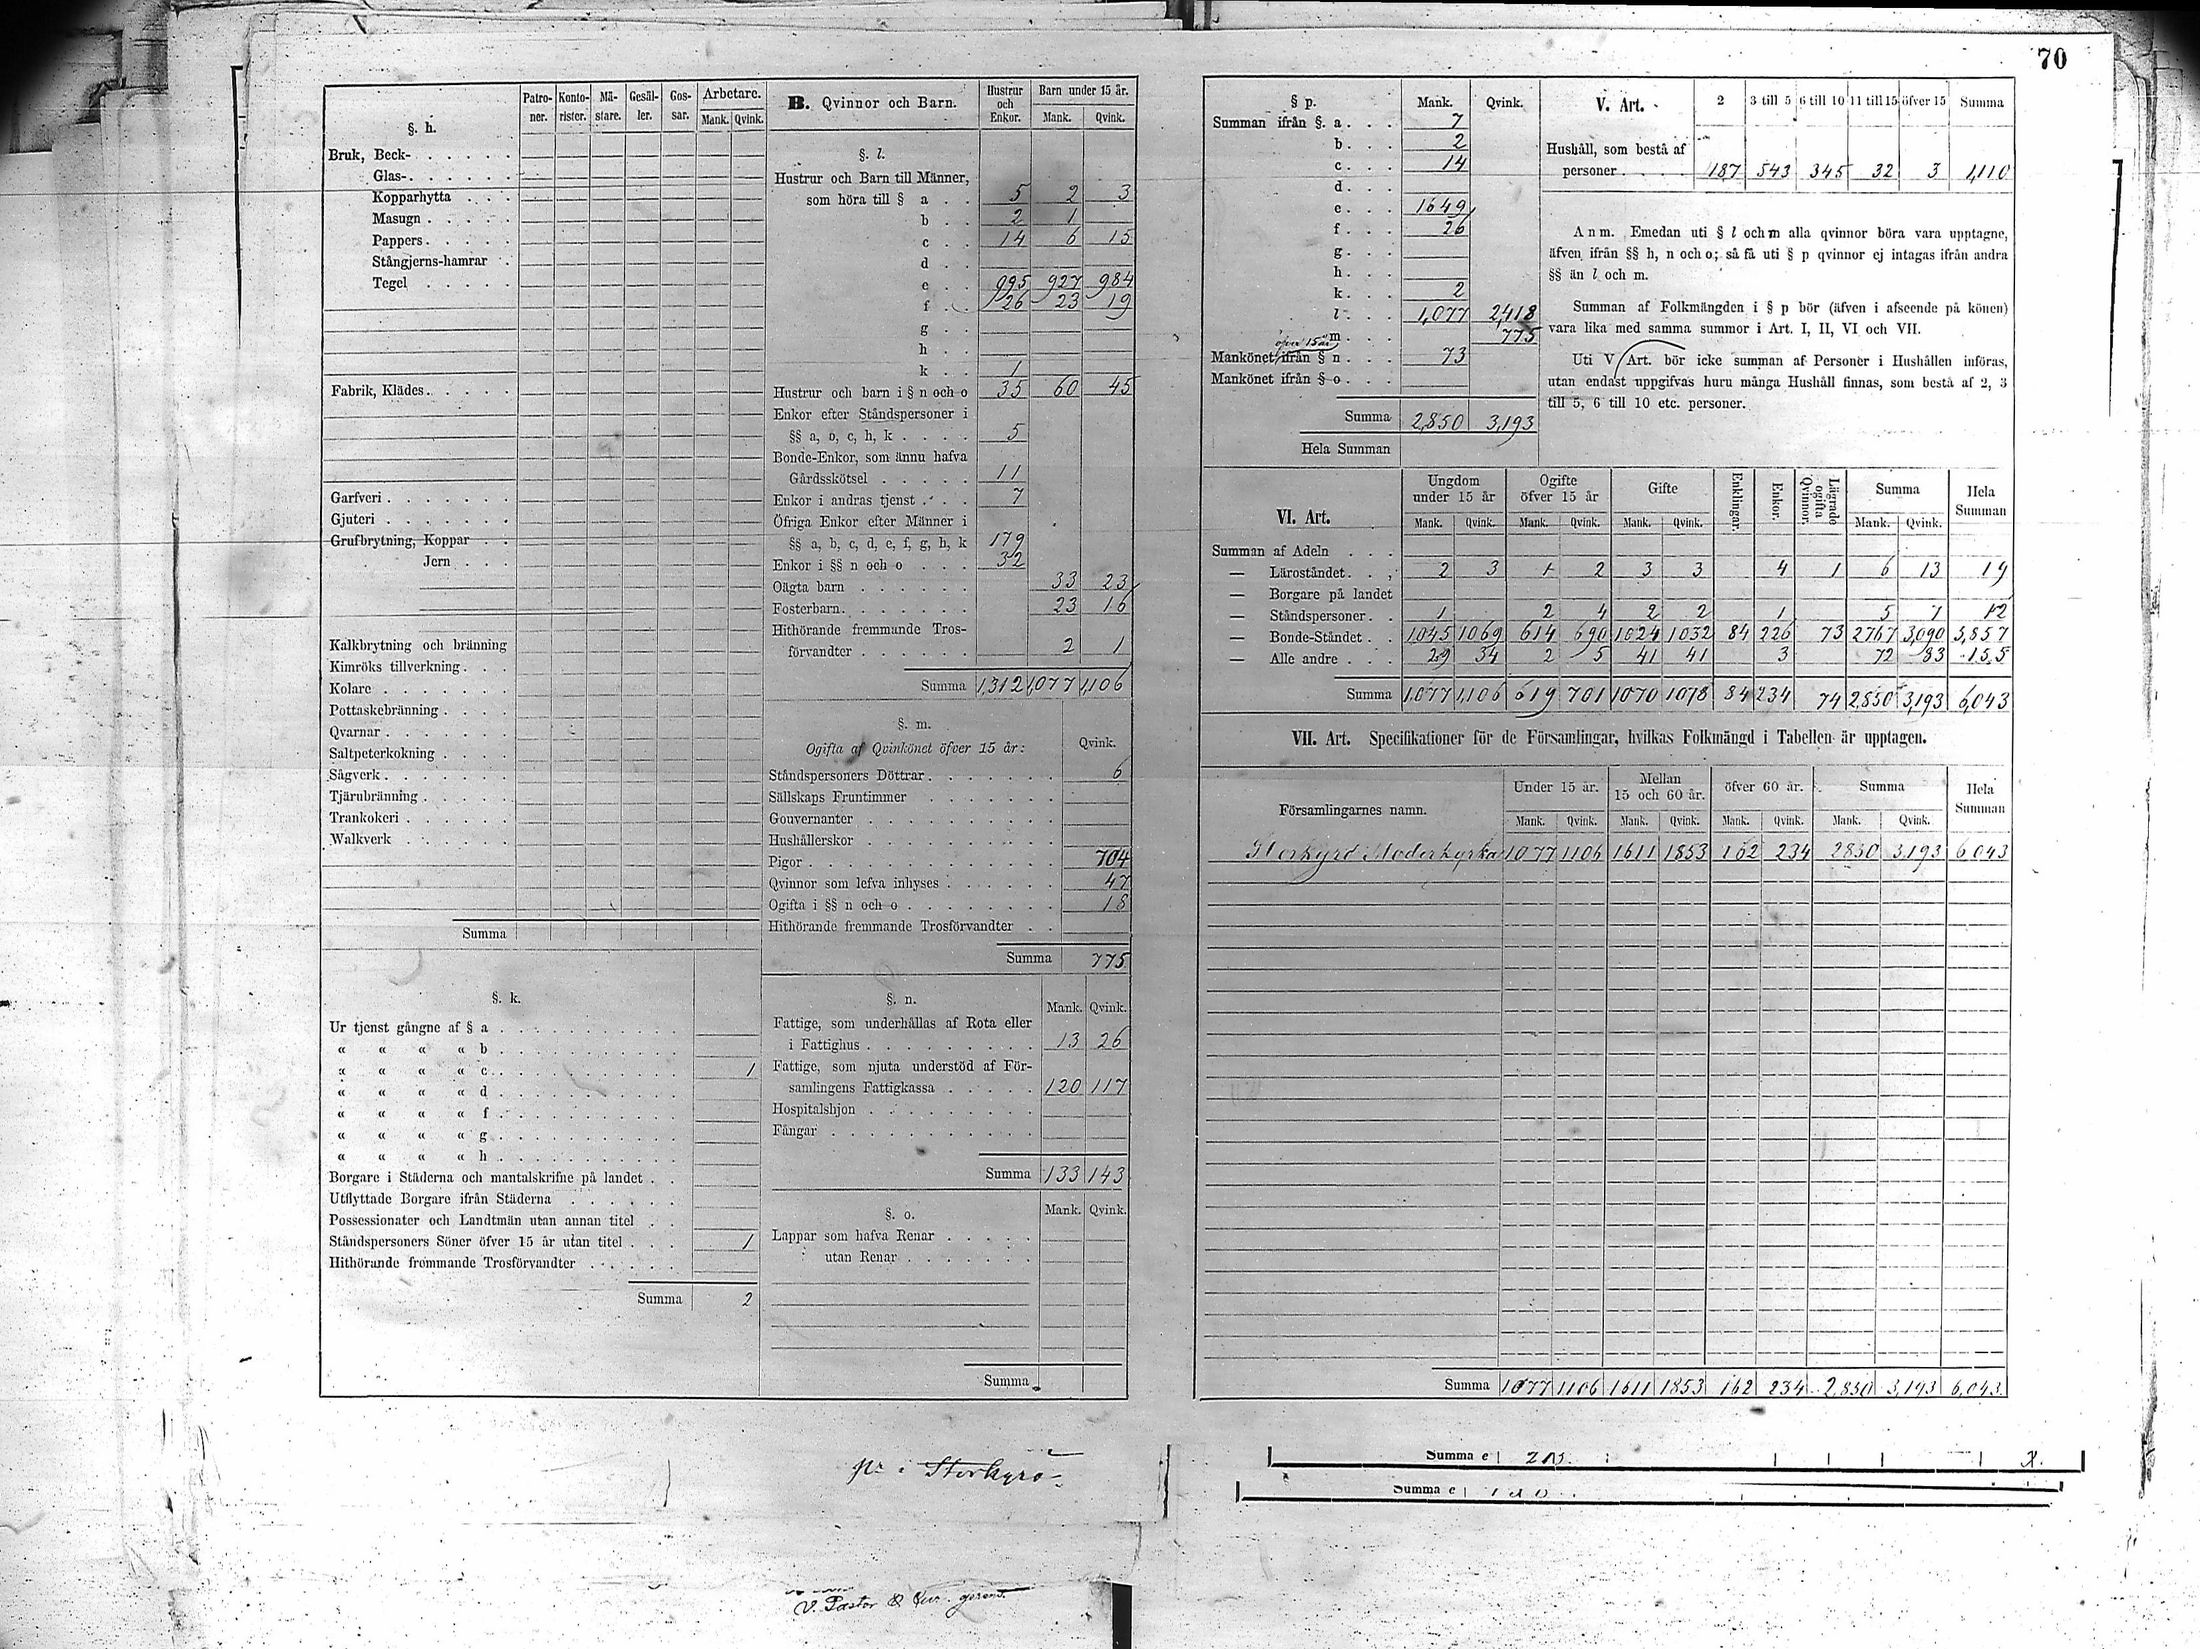 70
§. h.
Patroner. Kontorister. Mästare. Gesäller. Gossar. Arbetare. Mank. Qvink.
Bruk, Beck-
Glas-
Kopparhytta
Masugn
Pappers
Stångjerns-hamrar
Tegel
Fabrik, Klädes
Garfveri
Gjuteri
Grufbrytning, Koppar
Jern
Kalkbrytning och bränning
Kimröks tillverkning
Kolare
Pottaskebränning
Qvarnar
Saltpeterkokning
Sågverk
Tjärubränning
Trankokeri
Walkverk
Summa
§. k.
Ur tjenst gångne af § a
« « « « b
« « « « c 1
« « « « d
« « « « f
« « « « g
« « « « h
Borgare i Städerna och mantalskrifne på landet
Utflyttade Borgare ifrån Städerna
Possessionater och Landtmän utan annan titel
Ståndspersoners Söner öfver 15 år utan titel 1
Hithörande frommande Trosförvandter
Summa 2
B. Qvinnor och Barn. Hustrur och Enkor. Barn under 15 år. Mank. Qvink.
§. l.
Hustrur och Barn till Männer,
som höra till § a 5 2 3
b 2 1
c 14 6 15
d
e 995 927 984
f 26 23 19
g
h
k 1
Hustrur och barn i § n och o 35 60 45
Enkor efter Ståndspersoner i
§§ a, b, c, h, k 5
Bonde-Enkor, som ännu hafva
Gårdsskötsel 11
Enkor i andras tjenst 7
Öfriga Enkor efter Männer i
§§ a, b, c, d, e, f, g, h, k 179
Enkor i §§ n och o 32
Oägta barn 33 23
Fosterbarn 23 16
Hithörande fremmande Tros-
förvandter 2 1
Summa 1,312 1,077 1,106
§. m.
Ogifta af Qvinkönet öfver 15 år: Qvink.
Ståndspersoners Döttrar 6
Sällskaps Fruntimmer
Gouvernanter
Hushållerskor
Pigor 704
Qvinnor som lefva inhyses 47
Ogifta i §§ n och o 18
Hithörande fremmande Trosförvandter
Summa 775
§. n.
Mank. Qvink.
Fattige, som underhållas af Rota eller
i Fattighus 13 26
Fattige, som njuta understöd af För-
samlingens Fattigkassa 120 117
Hospitalshjon
Fångar
Summa 133 143
§. o. Mank. Qvink.
Lappar som hafva Renar
utan Renar
Summa
§ p. Mank. Qvink.
Summan ifrån §. a 7
b 2
c 14
d
e 1649
f 26
g
h
k 2
l 1,077 2,418
m 775
öfver 15 år
Mankönet ifrån § n 73
Mankönet ifrån § o
Summa 2,850 3,193
Hela Summan
V. Art. 2 3 till 5 6 till 10 11 till 15 öfver 15 Summa
Hushåll, som bestå af
personer 187 543 345 32 3 1,110
Anm. Emedan uti § l och m alla qvinnor böra vara upptagne,
äfven ifrån §§ h, n och o; så få uti § p qvinnor ej intagas ifrån andra
§§ än l och m.
Summan af Folkmängden i § p bör (äfven i afseende på könen)
vara lika med samma summor i Art. I, II, VI och VII.
Uti V Art. bör icke summan af Personer i Hushållen införas,
utan endast uppgifvas huru många Hushåll finnas, som bestå af 2, 3
till 5, 6 till 10 etc. personer.
VI. Art. Ungdom under 15 år Ogifte öfver 15 år Gifte Enklingar. Enkor. Lägrade ogifta Qvinnor. Summa Hela Summan
Mank. Qvink. Mank. Qvink. Mank. Qvink. Mank. Qvink.
Summan af Adeln
— Läroståndet 2 3 1 2 3 3 4 1 6 13 19
— Borgare på landet
— Ståndspersoner 1 2 4 2 2 1 5 7 12
— Bonde-Ståndet 1045 1069 614 690 1024 1032 84 226 73 2767 3,090 5,857
— Alle andre 29 34 2 5 41 41 3 72 83 155
Summa 1,077 1,106 619 701 1070 1078 84 234 74 2,850 3,193 6,043
VII. Art. Specifikationer för de Församlingar, hvilkas Folkmängd i Tabellen är upptagen.
Församlingarnes namn. Under 15 år. Mellan 15 och 60 år. öfver 60 år. Summa Hela Summan
Mank. Qvink. Mank. Qvink. Mank. Qvink. Mank. Qvink.
Storkyrö Moderkyrka 1077 1106 1611 1853 162 234 2850 3,193 6043
Summa 1077 1106 1611 1853 162 234 2,850 3,193 6,043
Storkyrö
Summa e
Summa e
V. Pastor